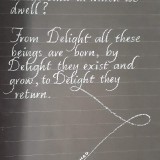 dwell?
From Delight all these
beings are born, by
Delight they exist and
grow, to Delight they
return.